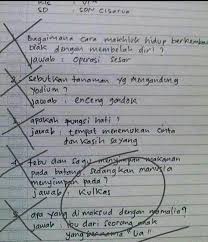 SD : SDN Cisarua
Bagaimana cara makhluk hidup berkembang
biak dengan membelah diri ?
Jawab : Operasi Sesar
2. Sebutkan tanaman yg Mengandung
Yodium ?
Jawab : Enceng gondok
apakah fungsi hati ?
Jawab : tempat menemukan Cinta
dan kasih sayang
4. tebu dan Sagu menyimpan makanan
pada batang, Sedangkan manusia
menyimpan pada ?
Jawab : Kulkas
5. apa yang dimaksud dengan nomalia ?
Jawab : Ibu dari seorang anak
yang bernama "Lia"